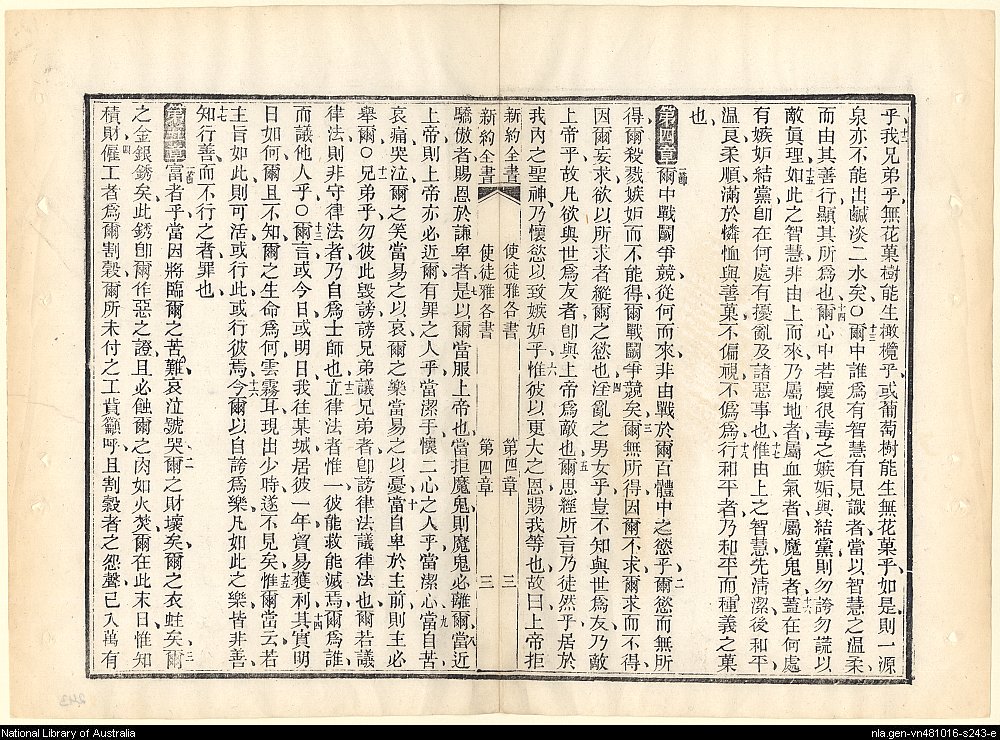 乎我兄弟乎無花菓樹能生橄欖乎或葡萄樹能生無花菓乎如是則一源
十二
泉亦不能出鹹淡二水矣○爾中誰爲有智慧有見識者當以智慧之溫柔
十三
而由其善行顯其所爲也爾心中若懷很毒之嫉妬與結黨則勿誇勿謊以
十四
敵眞理如此之智慧非由上而來乃屬地者屬血氣者屬魔鬼者蓋在何處
十五 十六
有嫉妬結黨卽在何處有擾亂及諸惡事也惟由上之智慧先淸潔後和平
十七
溫良柔順滿於憐恤與善菓不偏視不僞爲行和平者乃和平而種義之菓
十八
也
第四章 爾中戰鬬爭競從何而來非由戰於爾百體中之慾乎爾慾而無所
一節 二
得爾殺戮嫉妬而不能得爾戰鬬爭競矣爾無所得因爾不求爾求而不得
三
因爾妄求欲以所求者縱爾之慾也淫亂之男女乎豈不知與世爲友乃敵
四
上帝乎故凡欲與世爲友者卽與上帝爲敵也爾思經所言乃徒然乎居於
五
我內之聖神乃懷慾以致嫉妬乎惟彼以更大之恩賜我等也故曰上帝拒
六
新約全書 使徒雅各書 第四章 三
新約全書 使徒雅各書 第四章 三
驕傲者賜恩於謙卑者是以爾當服上帝也當拒魔鬼則魔鬼必離爾當近
七 八
上帝則上帝亦必近爾有罪之人乎當潔手懷二心之人乎當潔心當自苦
九
哀痛哭泣爾之笑當易之以哀爾之樂當易之以憂當自卑於主前則主必
十
舉爾○兄弟乎勿彼此毀謗謗兄弟議兄弟者卽謗律法議律法也爾若議
十一
律法則非守律法者乃自爲士師也立律法者惟一彼能救能滅焉爾爲誰
十二
而議他人乎○爾言或今日或明日我往某城居彼一年貿易獲利其實明
十三 十四
日如何爾且不知爾之生命爲何雲霧耳現出少時遂不見矣惟爾當云若
十五
主旨如此則可活或行此或行彼焉今爾以自誇爲樂凡如此之樂皆非善
十六
知行善而不行之者罪也
十七
第五章 富者乎當因將臨爾之苦難哀泣號哭爾之財壞矣爾之衣蛀矣爾
一節 二 三
之金銀銹矣此銹卽爾作惡之證且必蝕爾之肉如火焚爾在此末日惟知
積財僱工者爲爾割穀爾所未付之工貲籲呼且割穀者之怨聲已入萬有
四
National Library of Australia
nla.gen-vn481016-s243-e